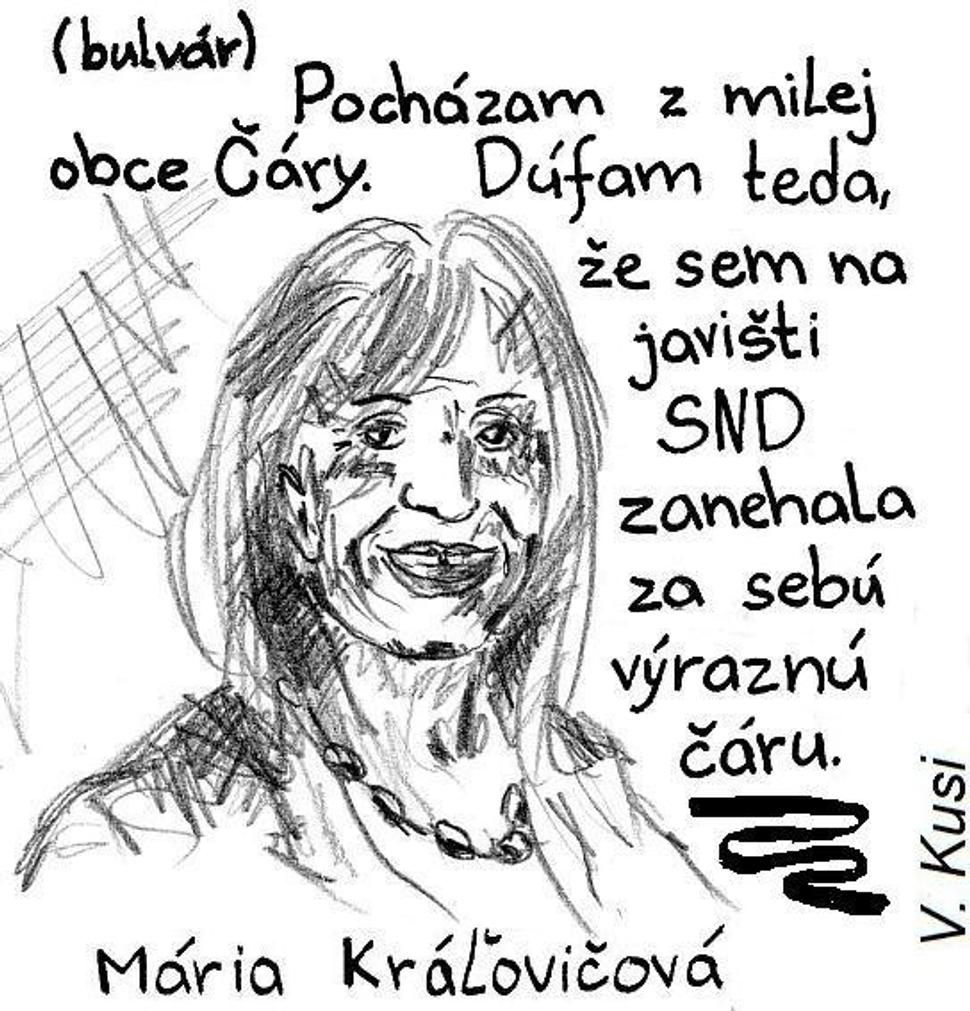 (bulvár)
Pochádzam z milej
obce Čáry. Dúfam teda,
že sem na
javišti
SND
zanehala
za sebú
výraznú
čáru.
V. Kusi
Mária Kráľovičová